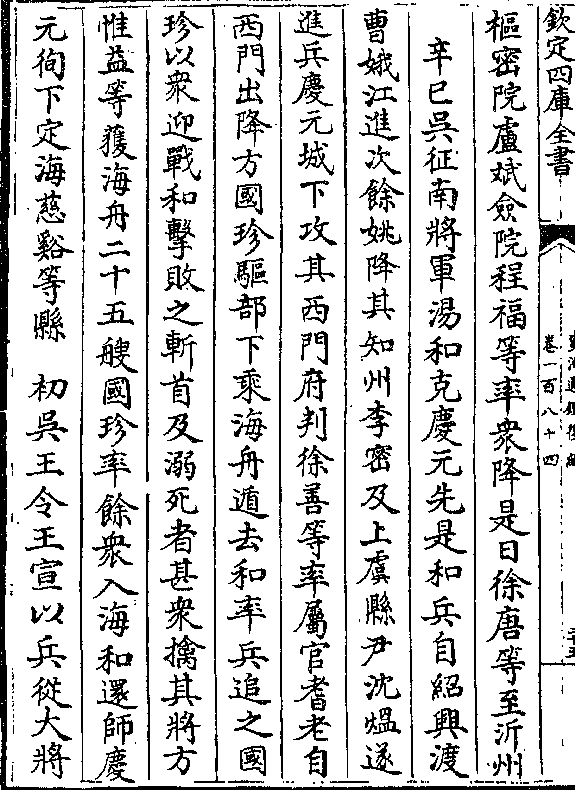 欽定四庫全書
卷一百八十四
樞密院盧斌僉院程福等率衆降是日徐唐等至沂州
辛巳吳征南將軍湯和克慶元先是和兵自紹興渡
曹娥江進次餘姚降其知州李密及上虞縣尹沈煴遂
進兵慶元城下攻其西門府判徐善等率屬官耆老自
西門出降方國珍驅部下乘海舟遁去和率兵追之國
珍以衆迎戰和擊敗之斬首及溺死者甚衆擒其將方
惟益等獲海舟二十五艘國珍率餘衆入海和還師慶
元徇下定海慈谿等縣　初吳王令王宣以兵從大將